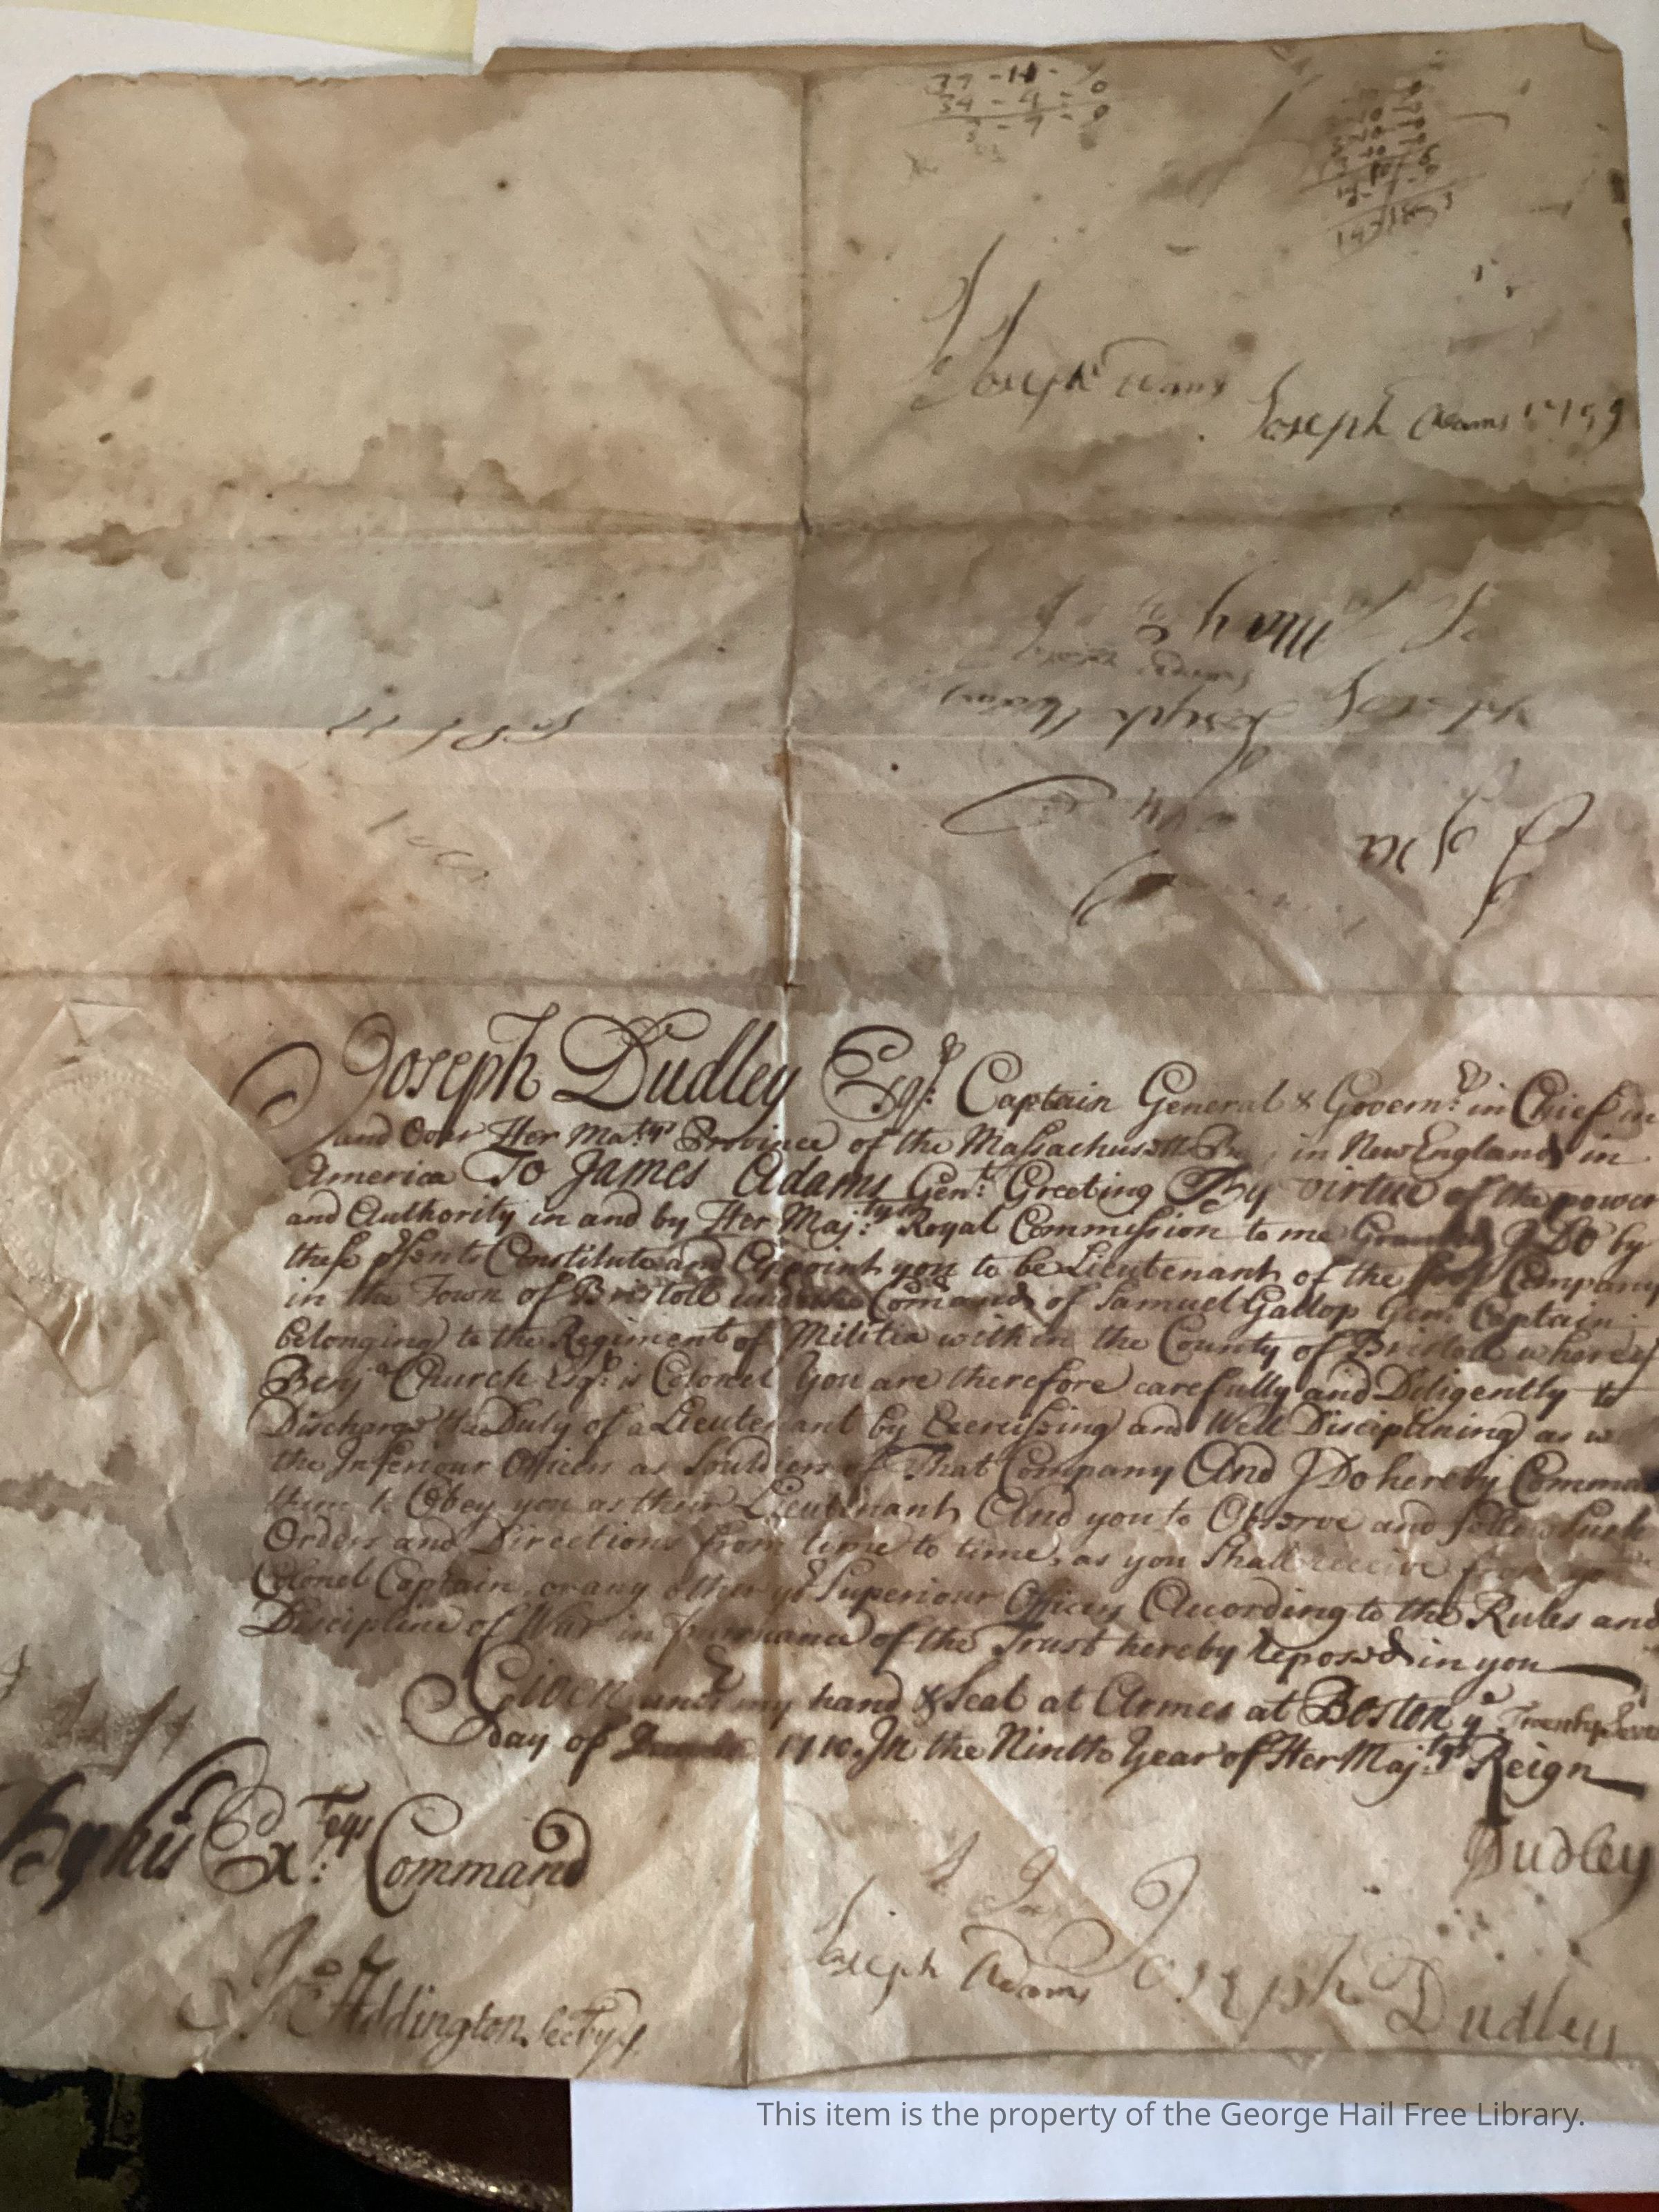 37 - 11 - 0
34 - 4 - 0
3 - 7 - 0
Joseph
Joseph Adams
Joseph Adams
Joseph Dudley Esqr: Captain General & Governr: in Chief in
and Over Her Matys Province of the Massachusetts in New England in
America To James Adams Gent: Greeting By virtue of the power
and Authority in and by Her Majtys: Royal Commission to me Granted I Do by
these psents Constitute and Appoint you to be Lieutenant of the foot Company
in the Town of Bristoll under the Comand of Samuel Gallop Gent Captain
belonging to the Regiment of Militia within the County of Bristoll whereof
Benja Church Esqr: is Colonel You are therefore carefully and Diligently to
Discharge the Duty of a Lieutenant by Exercising and Well Disciplining as w
the Inferiour Officers as Souldiers of That Company And I Do hereby Comma
them to Obey you as their Lieutenant And you to Observe and follow Such
Orders and Directions from time to time, as you Shall receive from yo
Colonel Captain, or any other yr Superiour Officers According to the Rules and
Discipline of War in Pursuance of the Trust hereby Reposed in you
Given under my hand & Seal at Armes at Boston ye Twenty Seve
day of 1710. In the Ninth Year of Her Majtys: Reign
By his Extcys: Command
Dudley
Joseph Adams Joseph Dudley
Js Addington Secrty
This item is the property of the George Hail Free Library.